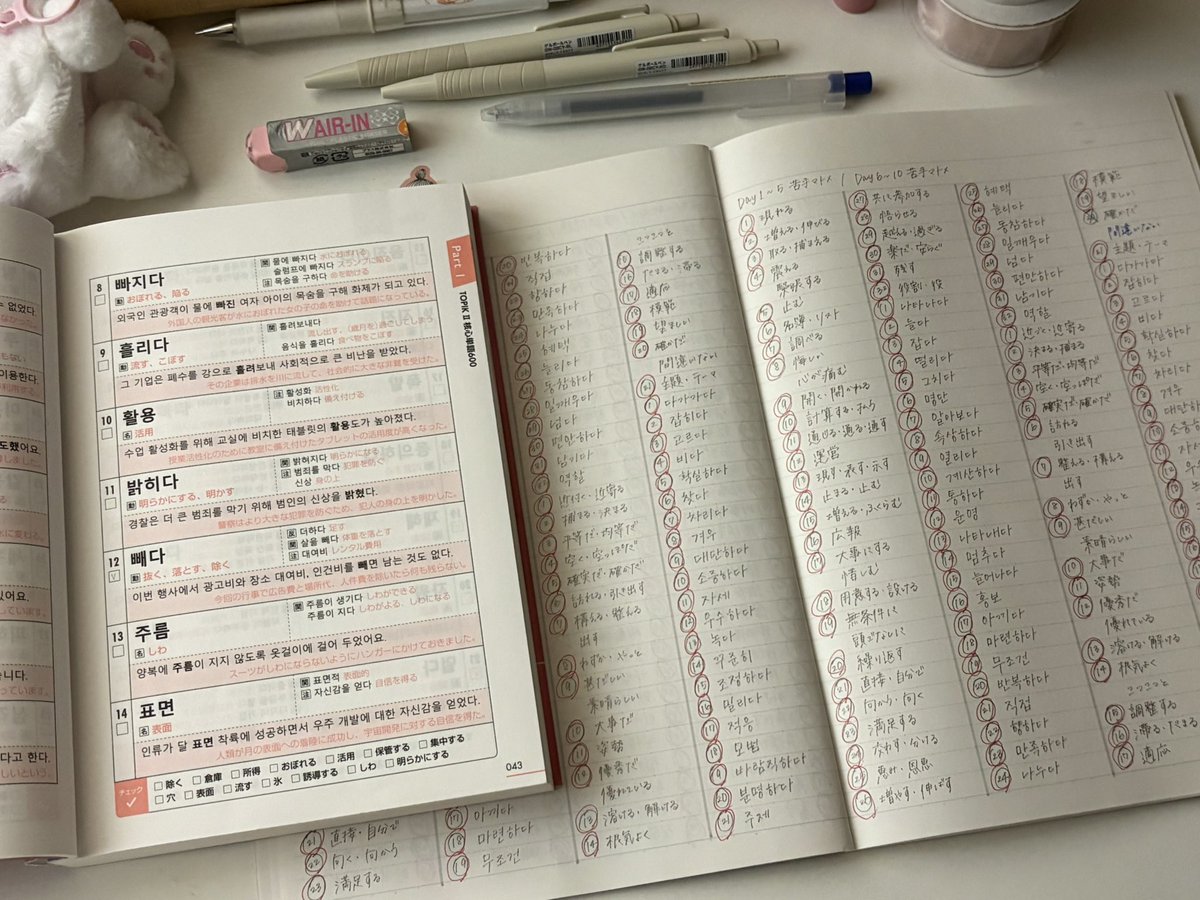 W AIR-IN
Part 1
TOPIK II 核心単語600
8
빠지다
動 おぼれる、陥る
関 물에 빠지다 水におぼれる
슬럼프에 빠지다 スランプに陥る
注 목숨을 구하다 命を助ける
외국인 관광객이 물에 빠진 여자 아이의 목숨을 구해 화제가 되고 있다.
外国人の観光客が水におぼれた女の子の命を助けて話題になっている。
9
흘리다
動 流す、こぼす
関 흘려보내다
流し出す、(歳月を)過ごしてしまう
음식을 흘리다 食べ物をこぼす
그 기업은 폐수를 강으로 흘려보내 사회적으로 큰 비난을 받았다.
その企業は排水を川に流して、社会的に大きな非難を受けた。
10
활용
名 活用
注 활성화 活性化
비치하다 備え付ける
수업 활성화를 위해 교실에 비치한 태블릿의 활용도가 높아졌다.
授業活性化のために教室に備え付けたタブレットの活用度が高くなった。
11
밝히다
動 明らかにする、明かす
関 밝혀지다 明らかになる
注 범죄를 막다 犯罪を防ぐ
신상 身の上
경찰은 더 큰 범죄를 막기 위해 범인의 신상을 밝혔다.
警察はより大きな犯罪を防ぐため、犯人の身の上を明かした。
12
빼다
動 抜く、落とす、除く
反 더하다 足す
関 살을 빼다 体重を落とす
注 대여비 レンタル費用
이번 행사에서 광고비와 장소 대여비, 인건비를 빼면 남는 것도 없다.
今回の行事で広告費と場所代、人件費を除いたら何も残らない。
13
주름
名 しわ
関 주름이 생기다 しわができる
주름이 지다 しわがよる、しわになる
양복에 주름이 지지 않도록 옷걸이에 걸어 두었어요.
スーツがしわにならないようにハンガーにかけておきました。
14
표면
名 表面
関 표면적 表面的
注 자신감을 얻다 自信を得る
인류가 달 표면 착륙에 성공하면서 우주 개발에 대한 자신감을 얻었다.
人類が月の表面への着陸に成功し、宇宙開発に対する自信を得た。
チェック
□ 除く □ 倉庫 □ 所得 □ おぼれる □ 活用 □ 保管する □ 集中する
□ 穴 □ 表面 □ 流す □ 氷 □ 誘導する □ しわ □ 明らかにする
043
반복하다
직접
향하다
만족하다
나누다
혜택
늘리다
동참하다
일깨우다
넘다
편안하다
남기다
역할
近づく・近寄る
捕まる・決まる
平等だ・均等だ
空く・空っぽだ
確実だ・確かだ
詰める・引き出す
構える・整える
出す
わずか・やっと
甚だしい
素晴らしい
大事だ
⑪ 姿勢
⑫ 優秀だ
優れている
⑬ 溶ける・解ける
⑭ 根気よく
コツコツと
⑮ 調整する
⑯ だまる・滞る
⑰ 適応
⑱ 模範
⑲ 望ましい
⑳ 確かだ
間違いない
㉑ 主題・テーマ
① 다가가다
② 잡히다
③ 고르다
④ 비다
⑤ 확실하다
⑥ 찾다
⑦ 차리다
⑧ 겨우
⑨ 대단하다
⑩ 소중하다
⑪ 자세
⑫ 우수하다
⑬ 녹다
⑭ 꾸준히
⑮ 조정하다
⑯ 밀리다
⑰ 적응
⑱ 모범
⑲ 바람직하다
⑳ 분명하다
㉑ 주제
㉑ 直接・自分で
㉒ 向く・向かう
㉓ 満足する
⑰ 아끼다
⑱ 마련하다
⑲ 무조건
Day1~5 苦手マトメ / Day6~10 苦手マトメ
① 現れる
② 増える・伸びる
③ 取る・捕まえる
④ 震える
緊張する
⑤ 止む
⑥ 名簿・リスト
⑦ 調べる
⑧ 悔しい
心が痛む
⑨ 開く・開かれる
⑩ 計算する・払う
⑪ 通じる・通る・通す
⑫ 運営
⑬ 現す・表す・示す
⑭ 止まる・止む
⑮ 増える・ふくらむ
⑯ 広報
⑰ 大事にする
惜しむ
⑱ 用意する・設ける
⑲ 無条件に
頭ごなしに
⑳ 繰り返す
㉑ 直接・自分で
㉒ 向かう・向く
㉓ 満足する
㉔ 交わす・分ける
㉕ 恵み・恩恵
㉖ 増やす・伸ばす
㉗ 共に参加する
㉘ 悟らせる
㉙ 越える・過ぎる
㉚ 楽だ・安らぐ
㉛ 残す
㉜ 役割・役
① 나타나다
② 늘다
③ 잡다
④ 떨리다
⑤ 그치다
⑥ 명단
⑦ 알아보다
⑧ 속상하다
⑨ 열리다
⑩ 계산하다
⑪ 통하다
⑫ 운영
⑬ 나타내다
⑭ 멈추다
⑮ 늘어나다
⑯ 홍보
⑰ 아끼다
⑱ 마련하다
⑲ 무조건
⑳ 반복하다
㉑ 직접
㉒ 향하다
㉓ 만족하다
㉔ 나누다
㉕ 혜택
㉖ 늘리다
㉗ 동참하다
㉘ 일깨우다
㉙ 넘다
㉚ 편안하다
㉛ 남기다
㉜ 역할
① 近づく・近寄る
② 決まる・捕まる
③ 平等だ・均等だ
④ 空く・空っぽだ
⑤ 確実だ・確かだ
⑥ 訪れる
引き出す
⑦ 整える・構える
出す
⑧ わずか・やっと
⑨ 甚だしい
素晴らしい
⑩ 大事だ
⑪ 姿勢
⑫ 優秀だ
優れている
⑬ 溶ける・解ける
⑭ 根気よく
コツコツと
⑮ 調整する
⑯ 滞る・だまる
⑰ 適応
⑱ 模範
⑲ 望ましい
⑳ 確かだ
間違いない
㉑ 主題・テーマ
① 다가가다
② 잡히다
③ 고르다
④ 비다
⑤ 확실하다
⑥ 찾다
⑦ 차리다
⑧ 겨우